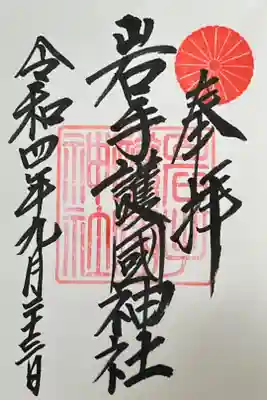 奉拝
岩手護國神社
令和四年九月二十三日